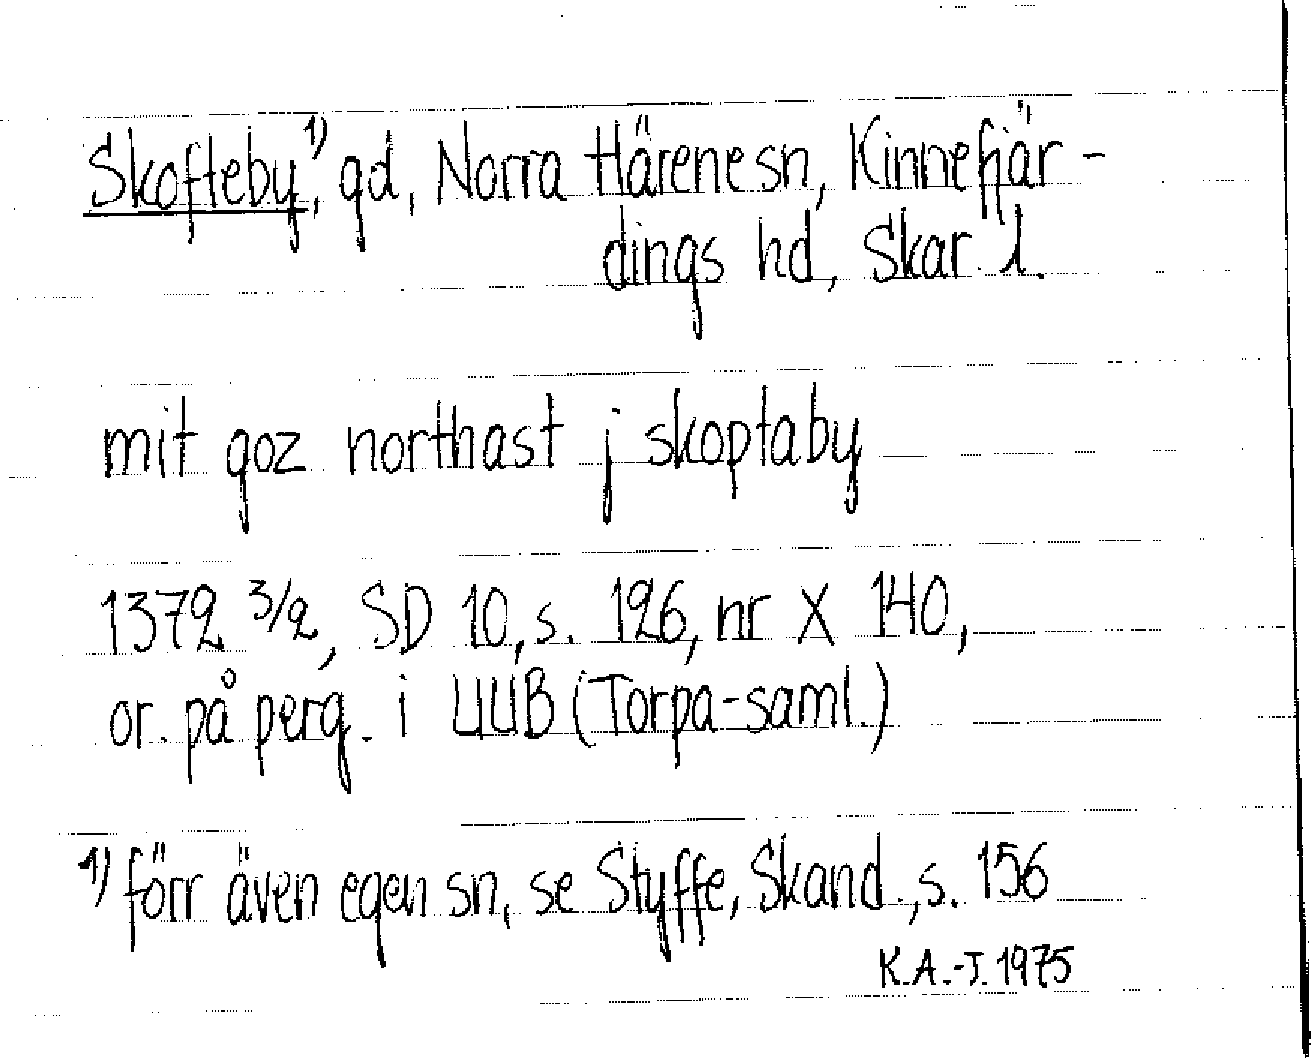 Skofteby,¹⁾ gd, Norra Härene sn, Kinnefjär-
dings hd, Skar. l.
mit goz northast j skoptaby
1372 3/2, SD 10, s. 126, nr X 140,
or. på perg. i UUB (Torpa-saml.)
1) förr även egen sn, se Styffe, Skand., s. 156
K.A.-J. 1975